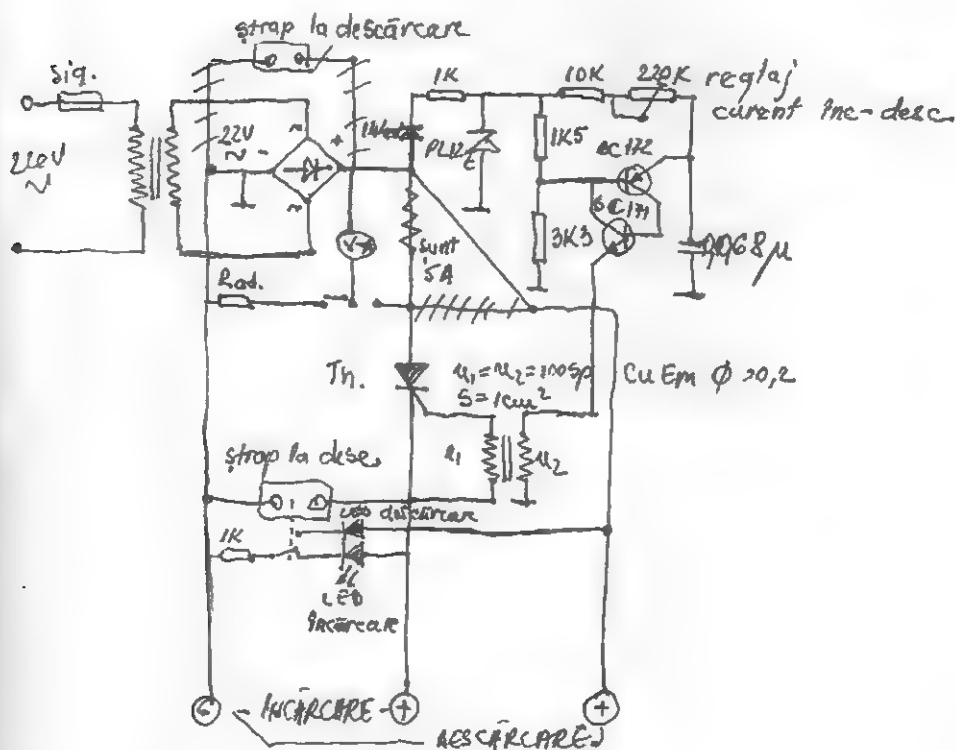 ștrap la descărcare
Sig.
220V
~
22V
~
-
~
+
~
1K
10K
220K
reglaj
curent înc-desc.
PL12
1K5
BC172
BC171
3K3
0,068µ
șunt
5A
V-A
Th.
n₁=n₂=100sp
S=1cm²
CuEm Ø=0,2
n₁
n₂
ștrap la desc.
LED descărcare
1K
LED
încărcare
- ÎNCĂRCARE -
+
+
DESCĂRCARE